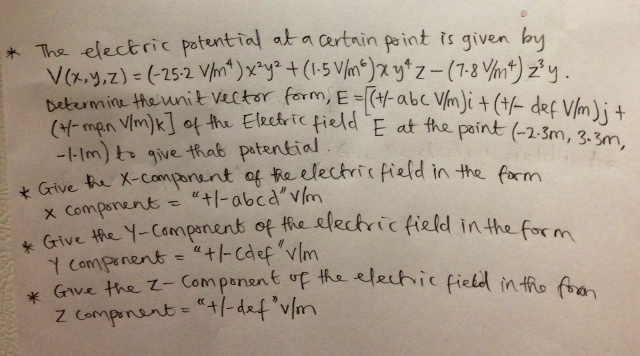 * The electric potential at a certain point is given by
V(x,y,z) = (-25.2 V/m⁴) x²y² + (1.5 V/m⁶) x y⁴ z - (7.8 V/m⁴) z³ y.
Determine the unit vector form, E = [(+/- abc V/m)i + (+/- def V/m)j +
(+/- mpn V/m)k] of the Electric field E at the point (-2.3m, 3.3m,
-1.1m) to give that potential.
* Give the X-component of the electric field in the form
X component = "+/-abcd" V/m
* Give the Y-Component of the electric field in the form
Y component = "+/-cdef" V/m
* Give the Z-Component of the electric field in the form
Z component = "+/-def" V/m